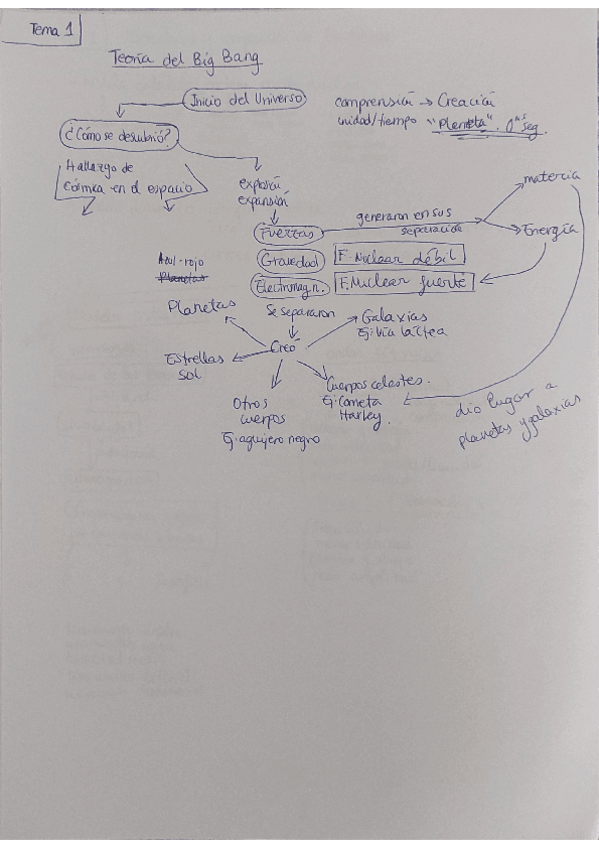 Tema 1
Teoría del Big Bang
Inicio del Universo
comprensión → Creación
unidad/tiempo "Planeta".
seg.
¿Cómo se descubrió?
Hallazgo de
en el espacio
explosión
expansión
generaron en sus
separación
materia
Energía
Fuerzas
Gravedad
F. Nuclear débil
Electromagn.
F. Nuclear fuerte
Azul-rojo
Planetas
Planetas
Se separaron
Creó
Galaxias
Ej: Vía láctea
Estrellas
Sol
Cuerpos celestes.
Ej: Cometa
Harley.
Otros
cuerpos
Ej: agujero negro
dio lugar a
planetas y galaxias